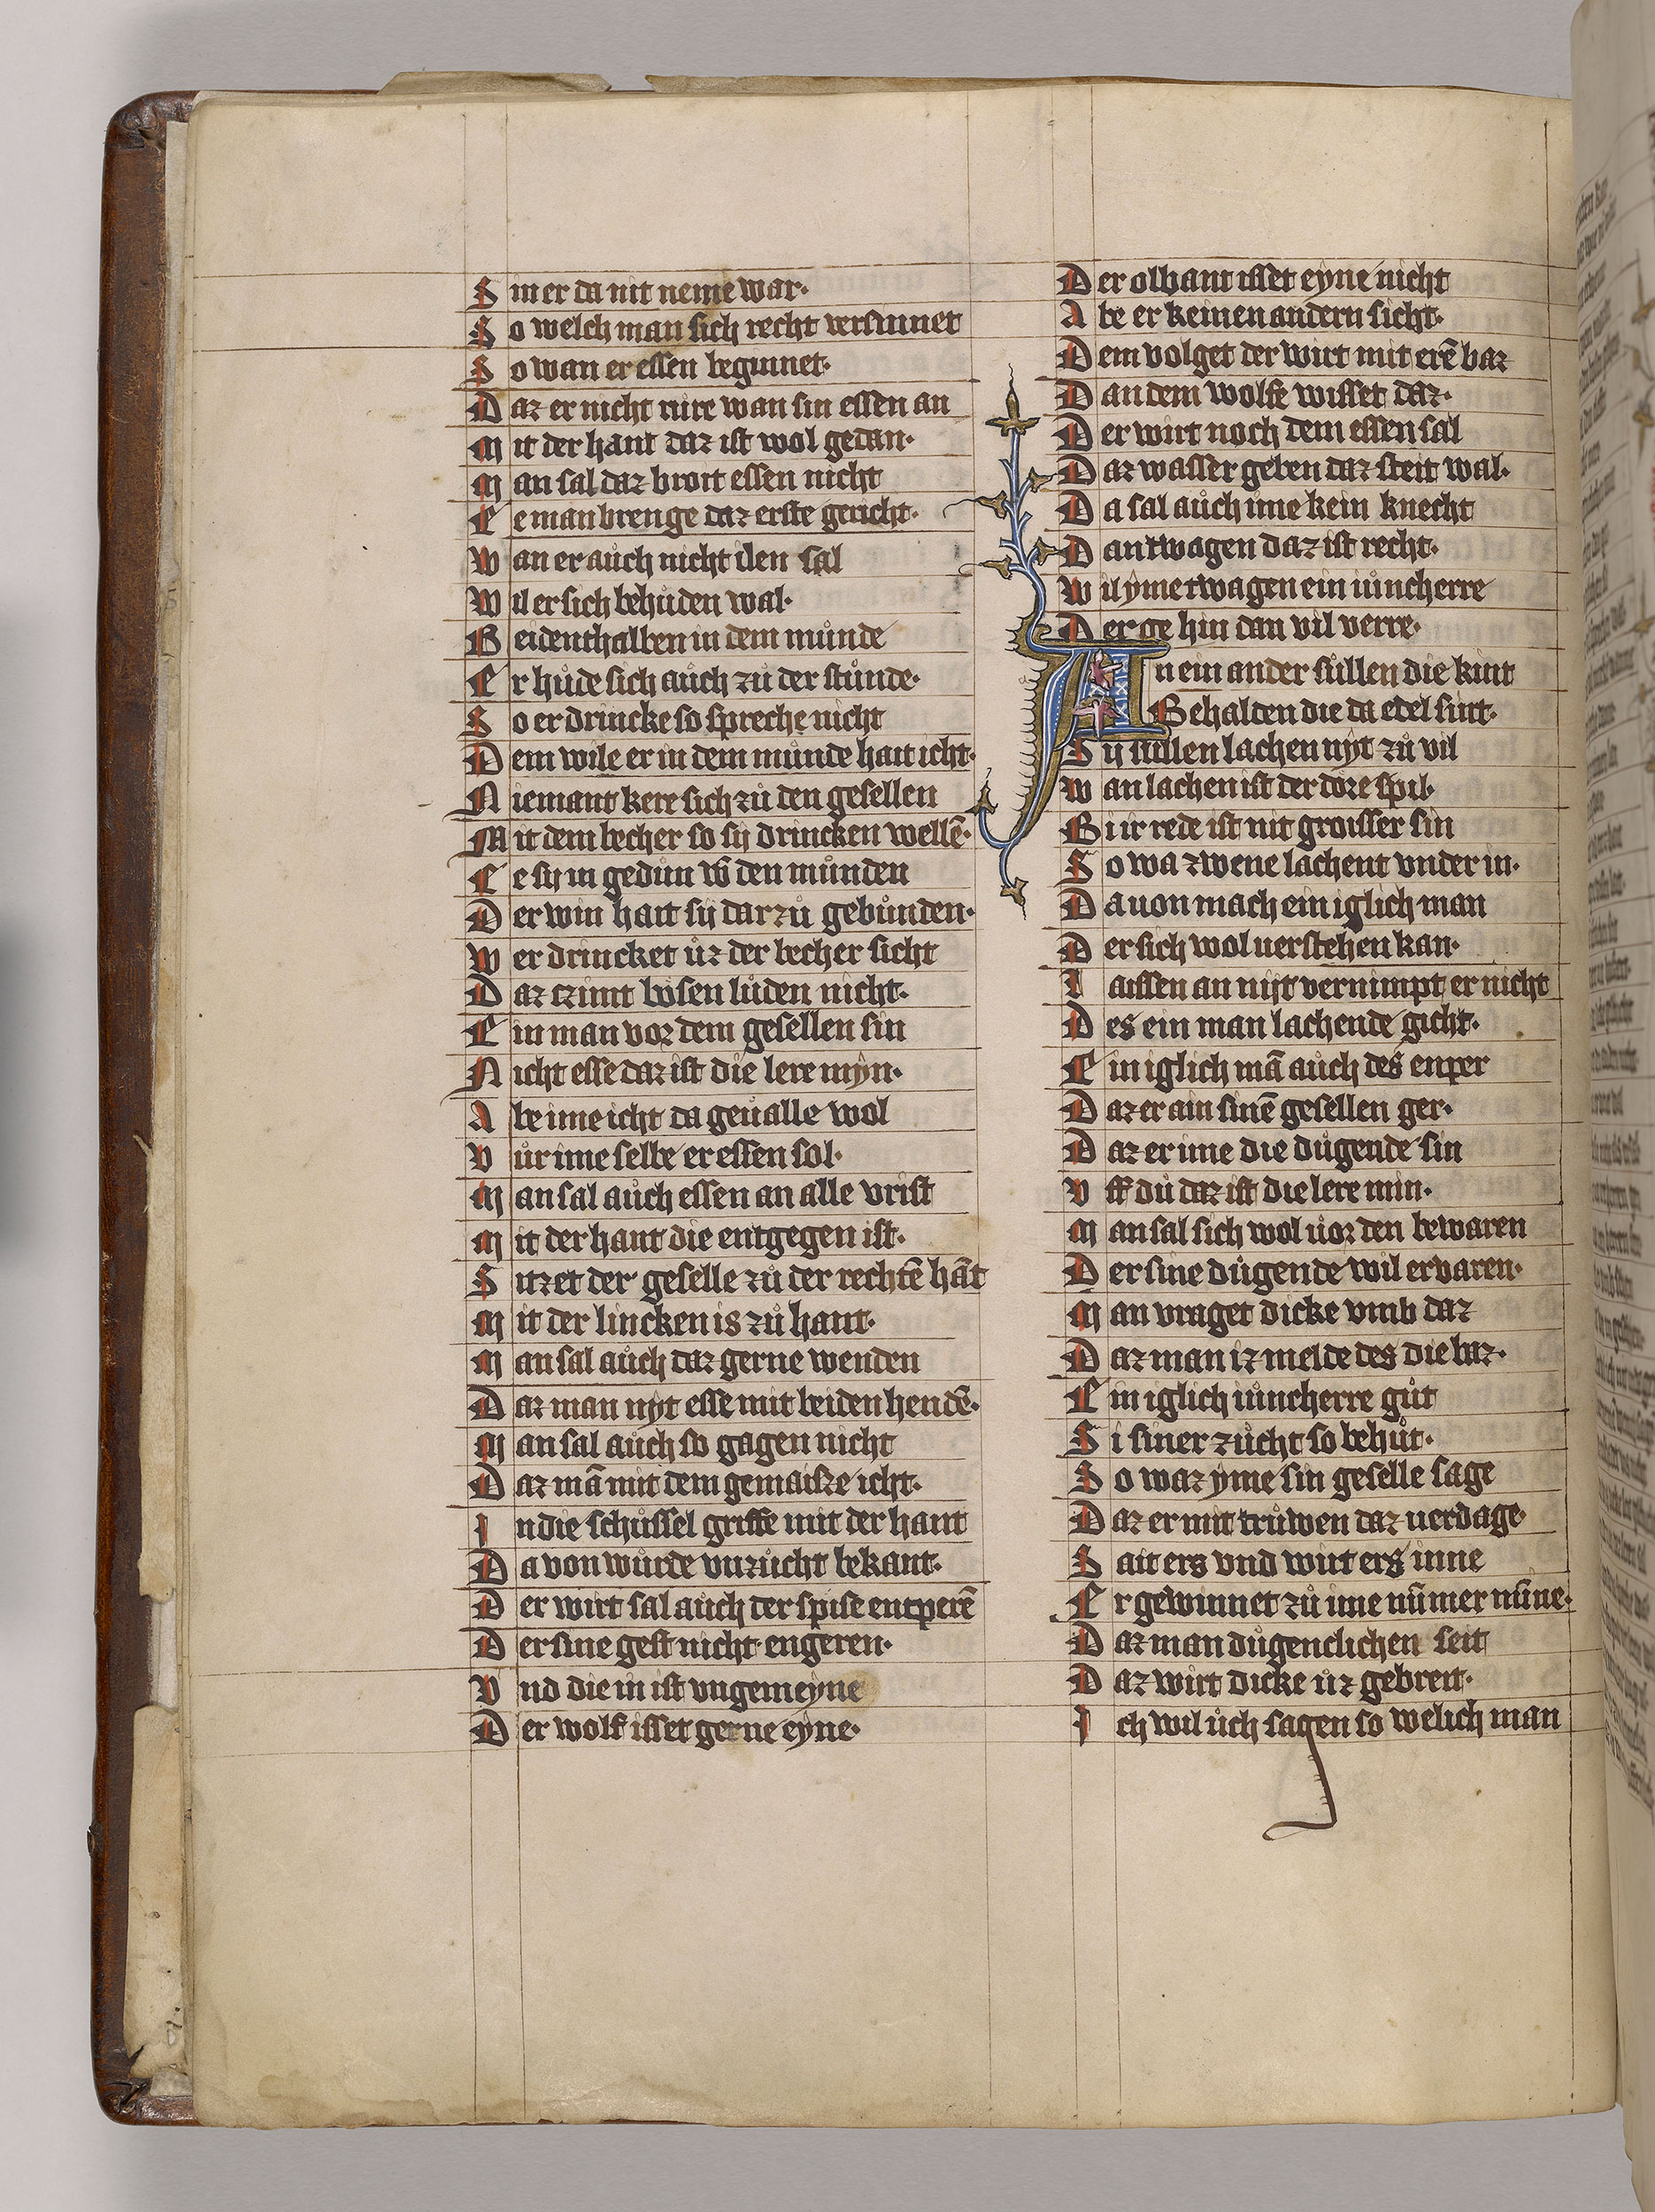 Siner da nit neme war·
So welch man sich recht versinnet
So wan er essen beginnet·
Daz er nicht rure wan sin essen an
Mit der hant daz ist wol gedan·
Man sal daz broit essen nicht
Ee man brenge daz erste gericht·
Wan er auch nicht ilen sal
Wil er sich behuͦden wal·
Beidenthalben in dem muͦnde
Er huͦde sich auͦch zuͦ der stuͦnde·
So er drincke so spreche nicht
Dem wile er in dem muͦnde hait icht·
Niemant kere sich zuͦ den gesellen
Mit dem becher so sij drincken wellē·
Ee sij in geduͦn vō den muͦnden
Der win hait sij dar zuͦ gebuͦnden·
Wer drincket uͦz der becher sicht
Daz czimt bosen luͦden nicht·
Ein man vor dem gesellen sin
Nicht esse daz ist die lere myn·
Abe ime icht da geuͦalle wol
Vuͦr ime selbe er essen sol·
Man sal auͦch essen an alle vrist
Mit der hant die entgegen ist·
Sitzet der geselle zuͦ der rechtē hāt
Mit der lincken is zuͦ hant·
Man sal auͦch daz gerne wenden
Daz man nyt esse mit beiden hendē·
Man sal auͦch so gagen nicht
Daz mā mit dem gemaisze icht·
In die schuͦssel griffe mit der hant
Da von wuͦrde vnzuͦcht bekant·
Der wirt sal auͦch der spise entperē
Der sine gest nicht engeren·
Vnd die in ist vngemeyne
Der wolf isset gerne eyne·
Der olbant isset eyne nicht
Abe er keinen andern sicht·
Dem volget der wirt mit erē baz
Dan dem wolfe wisset daz·
Der wirt noch dem essen sal
Daz wasser geben daz steit wal·
Da sal auͦch ime kein knecht
Dan twagen daz ist recht·
Wil yme twagen ein iuͦncherre
Der ge hin dan vil verre·
An ein ander suͦllen die kint
Behalden die da edel sint·
Sij suͦllen lachen nyt zuͦ vil
Wan lachen ist der dore spil·
Bi ir rede ist nit groisser sin
So wa zwene lachent vnder in·
Da uon mach ein iglich man
Der sich wol uerstehen kan·
Laissen an nijt vernimpt er nicht
Des ein man lachende gicht·
Ein iglich mā auͦch des enper
Daz er ain sinē gesellen ger·
Daz er ime die duͦgende sin
Vff duͦ daz ist die lere min·
Man sal sich wol uͦor den bewaren
Der sine duͦgende wil ervaren·
Man vraget dicke vmb daz
Daz man iz melde des die baz·
Ein iglich iuͦncherre guͦt
Si siner zuͦcht so behuͦt·
So waz yme sin geselle sage
Daz er mit truͦwen daz uerdage·
Sait ers vnd wirt ers inne
Er gewinnet zuͦ ime nūmer mīne·
Daz man duͦgenclichen seit
Daz wirt dicke uͦz gebreit·
Ich wil uͦch sagen so welich man